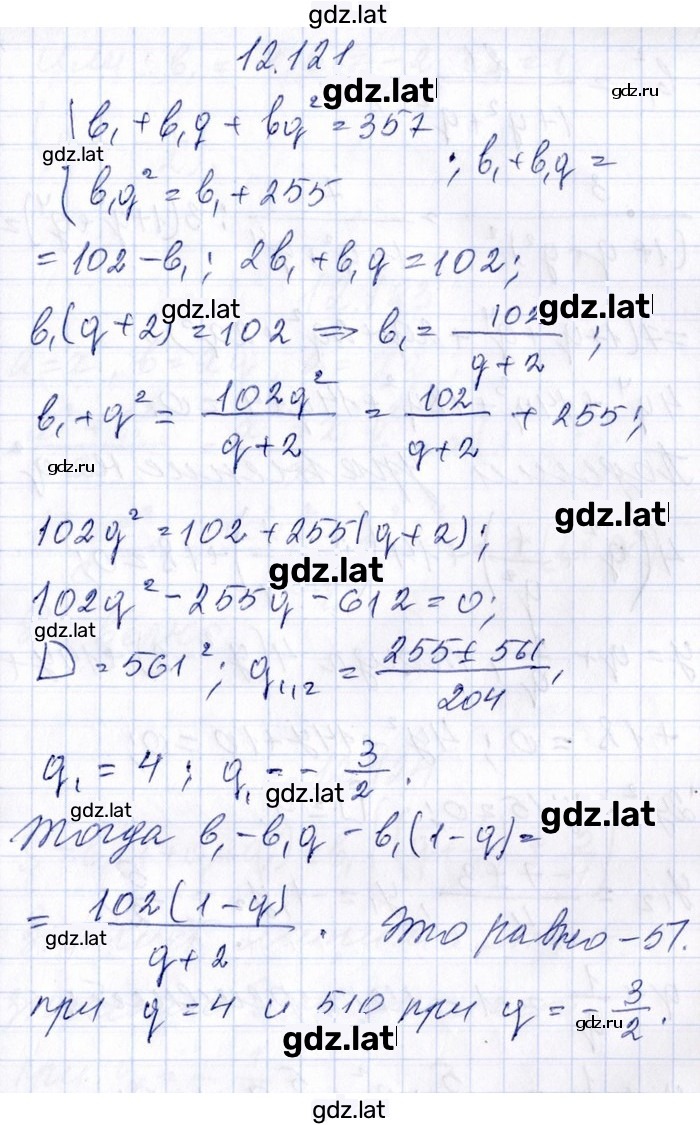 gdz.lat
12.121
gdz.lat
gdz.ru
{ b₁ + b₁q + bq² = 357
gdz.lat
; b₁ + b₁q =
b₁q² = b₁ + 255
= 102 – b₁; 2b₁ + b₁q = 102;
gdz.lat
gdz.lat
b₁(q+2) = 102 ⇒ b₁ = 102/(q+2);
b₁ + q² = 102q²/(q+2) = 102/(q+2) + 255;
gdz.ru
gdz.lat
102q² = 102 + 255(q+2);
gdz.lat
102q² – 255q – 612 = 0;
gdz.lat
D = 561²; q₁,₂ = (255 ± 561)/204,
q₁ = 4; q₁ = – 3/2.
gdz.lat
gdz.lat
gdz.lat
Тогда b₁ – b₁q – b₁(1–q) =
= 102(1–q)/(q+2). Это равно –51.
gdz.lat
при q = 4 и 510 при q = – 3/2.
gdz.ru
gdz.lat
gdz.lat